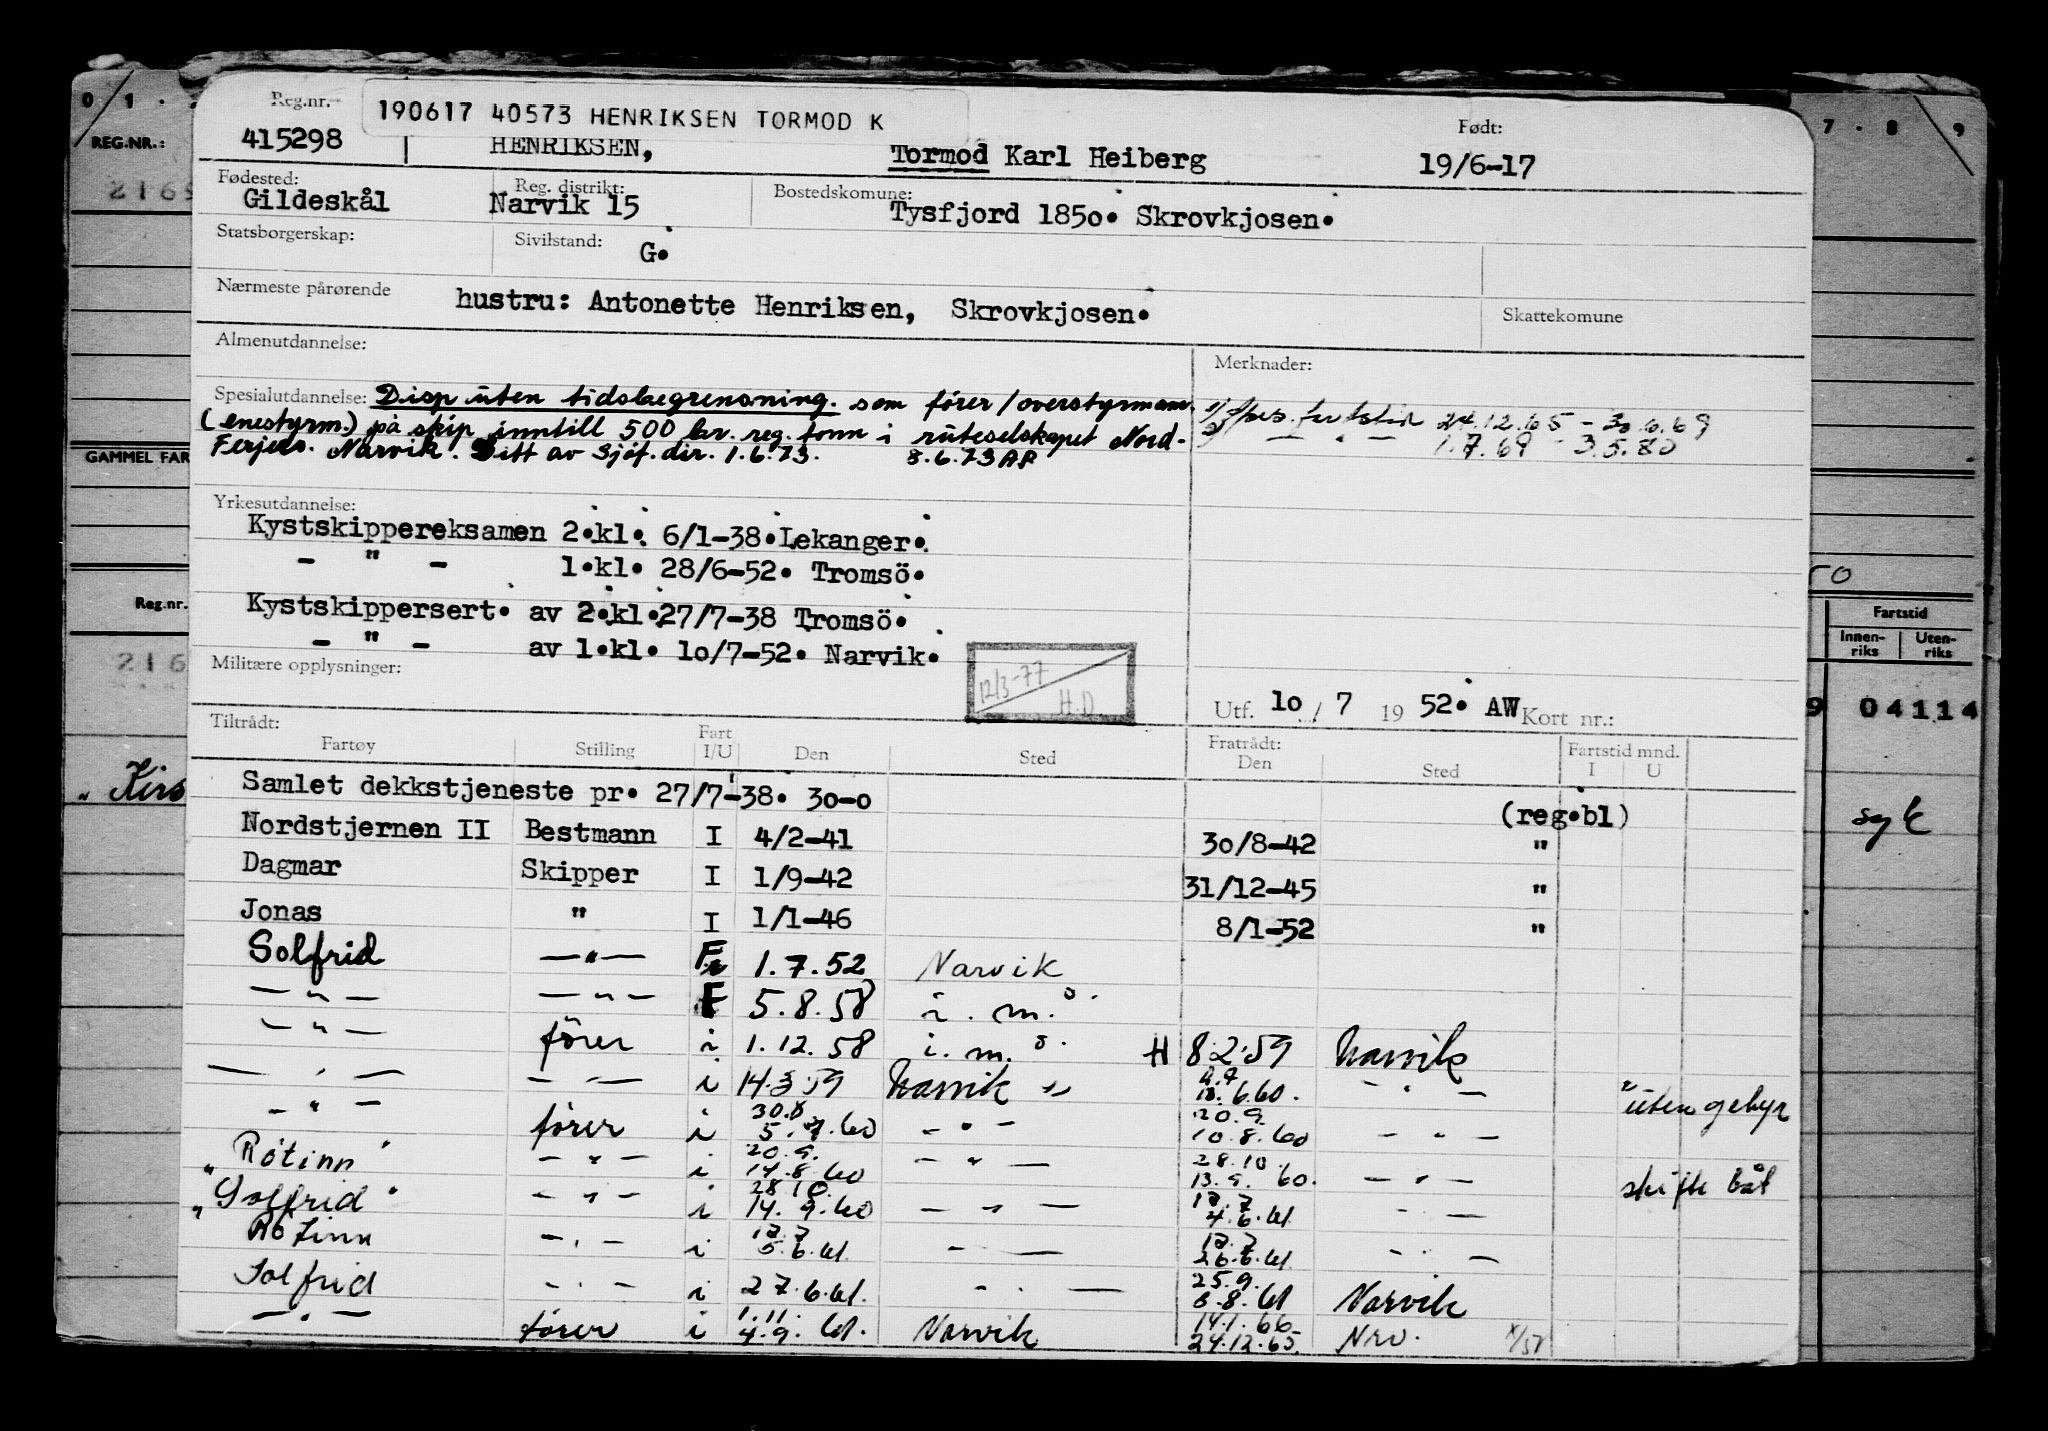 190617 40573 HENRIKSEN TORMOD K
Reg.nr. Født:
415298 HENRIKSEN, Tormod Karl Heiberg 19/6-17
Fødested: Reg. distrikt: Bostedskomune:
Gildeskål Narvik 15 Tysfjord 1850. Skrovkjosen.
Statsborgerskap: Sivilstand: G.
Nærmeste pårørende hustru: Antonette Henriksen, Skrovkjosen. Skattekomune
Almenutdannelse: Merknader:
Spesialutdannelse: Disp uten tidsbegrensning. som fører/overstyrmann.
(enestyrm.) på skip inntill 500 br. reg. tonn i ruteselskapet Nord-
Ferjens. Narvik. Ditt av Sjöf. dir. 1.6.73. 8.6.73 AP
1) Spes. fartstid 24.12.65 - 30.6.69
2) — " — 1.7.69 - 3.5.80
Yrkesutdannelse:
Kystskippereksamen 2.kl. 6/1-38. Lekanger.
- " - 1.kl. 28/6-52. Tromsö.
Kystskippersert. av 2.kl. 27/7-38 Tromsö.
- " - av 1.kl. 10/7-52. Narvik.
Militære opplysninger:
12/3-77
H.D.
Utf. 10 / 7 19 52. AW Kort nr.:
Tiltrådt: Fratrådt: Fartstid mnd.
Fartøy Stilling Fart I/U Den Sted Den Sted I U
Samlet dekkstjeneste pr. 27/7-38. 30-0 (reg.bl)
Nordstjernen II Bestmann I 4/2-41 30/8-42 "
Dagmar Skipper I 1/9-42 31/12-45 "
Jonas " I 1/1-46 8/1-52 "
Solfrid — " — 1.7.52 Narvik
— " — — " — F 5.8.58 i. m.
— " — förer i 1.12.58 i. m. H 8.2.59 Narvik
— " — — " — i 14.3.59 Narvik 6.60. — " — uten gebyr
— " — förer i 30.8 5.7.60 — " — 20.9. 10.8.60 — " —
"Rötinn" — " — i 20.9. 14.8.60 — " — 28.10. 13.9.60. — " — skifte båt
"Solfrid" — " — i 28.10. 14.9.60 — " — 12.7 4.6.61 — " —
Rötinn — " — i 12.7 5.6.61. — " — 12.7 26.6.61 — " —
Solfrid — " — i 27.6.61. — " — 25.9. 8.61 Narvik
— " — förer i 1.11. 4.9.61. Narvik 14.1.66 24.12.65. Nrv.
0 1
REG.NR.:
GAMMEL FAR
Reg.nr.
216
" Kirs
7 8 9
Fartstid
Innenriks Utenriks
9 04114
syk